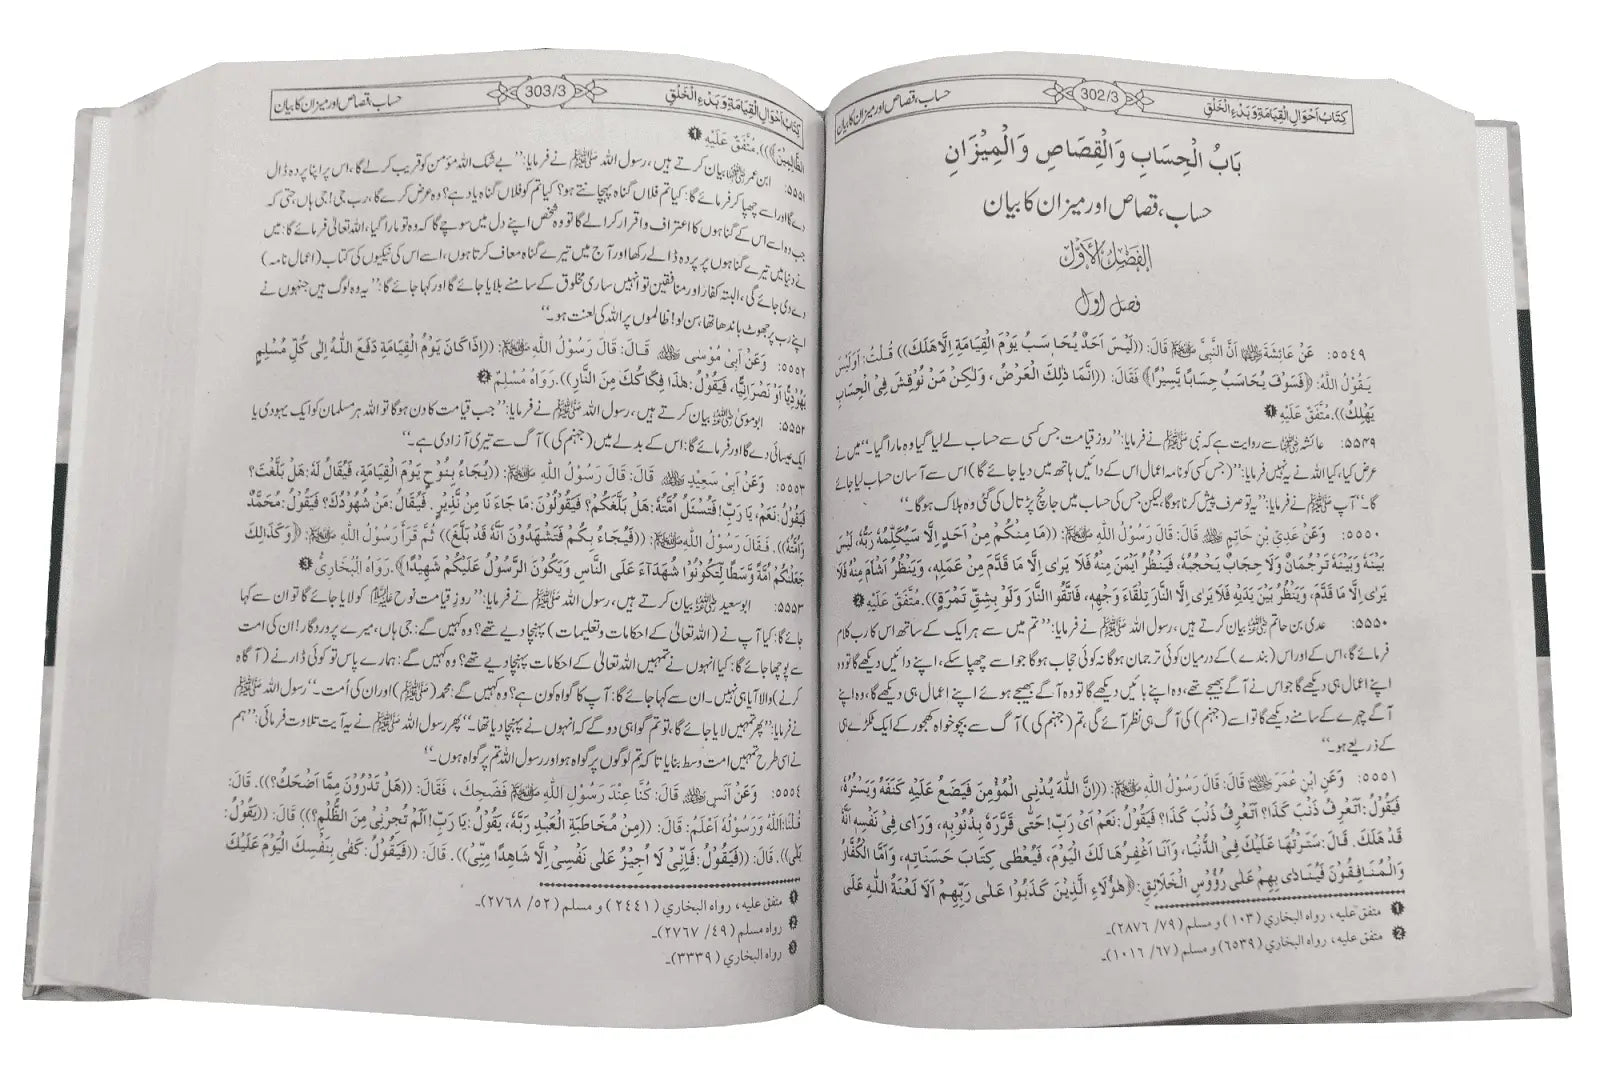 كِتَابُ اَحْوَالِ الْقِيَامَةِ وَ بَدْءِ الْخَلْقِ 302/3 حساب، قصاص اور میزان کا بیان
بَابُ الْحِسَابِ وَالْقِصَاصِ وَالْمِيْزَانِ
حساب، قصاص اور میزان کا بیان
الفَصْلُ الْاَوَّلُ
فصل اول
٥٥٤٩: عَنْ عَائِشَةَ رضي الله عنها اَنَّ النَّبِيَّ ﷺ قَالَ: ((لَيْسَ اَحَدٌ يُحَاسَبُ يَوْمَ الْقِيَامَةِ اِلَّا هَلَكَ)) قُلْتُ: اَوَلَيْسَ
يَقُوْلُ اللّٰهُ: ﴿فَسَوْفَ يُحَاسَبُ حِسَابًا يَّسِيْرًا﴾ فَقَالَ: ((اِنَّمَا ذٰلِكَ الْعَرْضُ، وَلٰكِنْ مَنْ نُوْقِشَ فِي الْحِسَابِ
يَهْلِكُ)). مُتَّفَقٌ عَلَيْهِ ❶
۵۵۴۹: عائشہ رضی اللہ عنہا سے روایت ہے کہ نبی ﷺ نے فرمایا: ’’روز قیامت جس کسی سے حساب لے لیا گیا وہ مارا گیا۔‘‘ میں نے
عرض کیا، کیا اللہ نے یہ نہیں فرمایا: ’’(جس کسی کو نامہ اعمال اس کے دائیں ہاتھ میں دیا جائے گا) اس سے آسان حساب لیا جائے
گا۔‘‘ آپ ﷺ نے فرمایا: ’’یہ تو صرف پیش کرنا ہوگا لیکن جس کی حساب میں جانچ پڑتال کی گئی وہ ہلاک ہوگا۔‘‘
٥٥٥٠: وَعَنْ عَدِيِّ بْنِ حَاتِمٍ رضي الله عنه قَالَ: قَالَ رَسُوْلُ اللّٰهِ ﷺ: ((مَا مِنْكُمْ مِنْ اَحَدٍ اِلَّا سَيُكَلِّمُهُ رَبُّهُ، لَيْسَ
بَيْنَهُ وَبَيْنَهُ تَرْجُمَانٌ وَلَا حِجَابٌ يَحْجُبُهُ، فَيَنْظُرُ اَيْمَنَ مِنْهُ فَلَا يَرٰى اِلَّا مَا قَدَّمَ مِنْ عَمَلِهِ، وَيَنْظُرُ اَشْأَمَ مِنْهُ فَلَا
يَرٰى اِلَّا مَا قَدَّمَ، وَيَنْظُرُ بَيْنَ يَدَيْهِ فَلَا يَرٰى اِلَّا النَّارَ تِلْقَاءَ وَجْهِهِ، فَاتَّقُوا النَّارَ وَلَوْ بِشِقِّ تَمْرَةٍ)). مُتَّفَقٌ عَلَيْهِ ❷
۵۵۵۰: عدی بن حاتم رضی اللہ عنہ بیان کرتے ہیں، رسول اللہ ﷺ نے فرمایا: ’’تم میں سے ہر ایک کے ساتھ اس کا رب کلام
فرمائے گا، اس کے اور اس (بندے) کے درمیان کوئی ترجمان ہوگا نہ کوئی حجاب ہوگا جو اسے چھپا سکے، اپنے دائیں دیکھے گا تو وہ
اپنے اعمال ہی دیکھے گا جو اس نے آگے بھیجے تھے، وہ اپنے بائیں دیکھے گا تو وہ آگے بھیجے ہوئے اپنے اعمال ہی دیکھے گا، وہ اپنے
آگے چہرے کے سامنے دیکھے گا تو اسے (جہنم) کی آگ ہی نظر آئے گی، تم (جہنم کی) آگ سے بچو خواہ کھجور کے ایک ٹکڑے ہی
کے ذریعے ہو۔‘‘
٥٥٥١: وَعَنِ ابْنِ عُمَرَ رضي الله عنه قَالَ: قَالَ رَسُوْلُ اللّٰهِ ﷺ: ((اِنَّ اللّٰهَ يُدْنِي الْمُؤْمِنَ فَيَضَعُ عَلَيْهِ كَنَفَهُ وَيَسْتُرُهُ،
فَيَقُوْلُ: اَتَعْرِفُ ذَنْبَ كَذَا؟ اَتَعْرِفُ ذَنْبَ كَذَا؟ فَيَقُوْلُ: نَعَمْ اَيْ رَبِّ! حَتّٰى قَرَّرَهُ بِذُنُوْبِهِ، وَرَاٰى فِيْ نَفْسِهِ اَنَّهُ
قَدْ هَلَكَ. قَالَ: سَتَرْتُهَا عَلَيْكَ فِي الدُّنْيَا، وَاَنَا اَغْفِرُهَا لَكَ الْيَوْمَ، فَيُعْطٰى كِتَابَ حَسَنَاتِهِ، وَاَمَّا الْكُفَّارُ
وَالْمُنَافِقُوْنَ فَيُنَادٰى بِهِمْ عَلٰى رُؤُوْسِ الْخَلَائِقِ: ﴿هٰؤُلَاءِ الَّذِيْنَ كَذَبُوْا عَلٰى رَبِّهِمْ اَلَا لَعْنَةُ اللّٰهِ عَلَى
❶ متفق عليه، رواه البخاري (١٠٣) و مسلم (٧٩/ ٢٨٧٦)۔
❷ متفق عليه، رواه البخاري (٦٥٣٩) و مسلم (٦٧/ ١٠١٦)۔
كِتَابُ اَحْوَالِ الْقِيَامَةِ وَ بَدْءِ الْخَلْقِ 303/3 حساب، قصاص اور میزان کا بیان
الظَّالِمِيْنَ﴾)). مُتَّفَقٌ عَلَيْهِ ❶
۵۵۵۱: ابن عمر رضی اللہ عنہما بیان کرتے ہیں، رسول اللہ ﷺ نے فرمایا: ’’بے شک اللہ مؤمن کو قریب کر لے گا، اس پر اپنا پردہ ڈال
دے گا اور اسے چھپا کر فرمائے گا: کیا تم فلاں گناہ پہچانتے ہو؟ کیا تم کو فلاں گناہ یاد ہے؟ وہ عرض کرے گا، رب جی! جی ہاں، حتی کہ
جب وہ اسے اس کے گناہوں کا اعتراف و اقرار کرا لے گا تو وہ شخص اپنے دل میں سوچے گا کہ وہ تو مارا گیا، اللہ تعالیٰ فرمائے گا: میں
نے دنیا میں تیرے گناہوں پر پردہ ڈالے رکھا اور آج میں تیرے گناہ معاف کرتا ہوں، اسے اس کی نیکیوں کی کتاب (اعمال نامہ)
دے دی جائے گی، البتہ کفار اور منافقین تو انہیں ساری مخلوق کے سامنے بلایا جائے گا اور کہا جائے گا: ’’یہ وہ لوگ ہیں جنہوں نے
اپنے رب پر جھوٹ باندھا تھا، سن لو! ظالموں پر اللہ کی لعنت ہو۔‘‘
٥٥٥٢: وَعَنْ اَبِيْ مُوْسٰى رضي الله عنه قَالَ: قَالَ رَسُوْلُ اللّٰهِ ﷺ: ((اِذَا كَانَ يَوْمُ الْقِيَامَةِ دَفَعَ اللّٰهُ اِلٰى كُلِّ مُسْلِمٍ
يَهُوْدِيًّا اَوْ نَصْرَانِيًّا، فَيَقُوْلُ: هٰذَا فِكَاكُكَ مِنَ النَّارِ)). رَوَاهُ مُسْلِمٌ ❷
۵۵۵۲: ابو موسیٰ رضی اللہ عنہ بیان کرتے ہیں، رسول اللہ ﷺ نے فرمایا: ’’جب قیامت کا دن ہوگا تو اللہ ہر مسلمان کو ایک یہودی یا
ایک عیسائی دے گا اور فرمائے گا: اس کے بدلے میں (جہنم کی) آگ سے تیری آزادی ہے۔‘‘
٥٥٥٣: وَعَنْ اَبِيْ سَعِيْدٍ رضي الله عنه قَالَ: قَالَ رَسُوْلُ اللّٰهِ ﷺ: ((يُجَاءُ بِنُوْحٍ يَوْمَ الْقِيَامَةِ، فَيُقَالُ لَهُ: هَلْ بَلَّغْتَ؟
فَيَقُوْلُ: نَعَمْ، يَا رَبِّ! فَتُسْئَلُ اُمَّتُهُ: هَلْ بَلَّغَكُمْ؟ فَيَقُوْلُوْنَ: مَا جَاءَنَا مِنْ نَّذِيْرٍ. فَيُقَالُ: مَنْ شُهُوْدُكَ؟ فَيَقُوْلُ: مُحَمَّدٌ
وَاُمَّتُهُ)). فَقَالَ رَسُوْلُ اللّٰهِ ﷺ: ((فَيُجَاءُ بِكُمْ فَتَشْهَدُوْنَ اَنَّهُ قَدْ بَلَّغَ)) ثُمَّ قَرَأَ رَسُوْلُ اللّٰهِ ﷺ: ﴿وَكَذٰلِكَ
جَعَلْنٰكُمْ اُمَّةً وَّسَطًا لِّتَكُوْنُوْا شُهَدَآءَ عَلَى النَّاسِ وَيَكُوْنَ الرَّسُوْلُ عَلَيْكُمْ شَهِيْدًا﴾. رَوَاهُ الْبُخَارِيُّ ❸
۵۵۵۳: ابو سعید رضی اللہ عنہ بیان کرتے ہیں، رسول اللہ ﷺ نے فرمایا: ’’روزِ قیامت نوح علیہ السلام کو لایا جائے گا تو ان سے کہا
جائے گا: کیا آپ نے (اللہ تعالیٰ کے احکامات و تعلیمات) پہنچا دیے تھے؟ وہ کہیں گے: جی ہاں، میرے پروردگار! ان کی امت
سے پوچھا جائے گا: کیا انہوں نے تمہیں اللہ تعالیٰ کے احکامات پہنچا دیے تھے؟ وہ کہیں گے: ہمارے پاس تو کوئی ڈرانے (آگاہ
کرنے) والا آیا ہی نہیں۔ ان سے کہا جائے گا: آپ کا گواہ کون ہے؟ وہ کہیں گے: محمد (ﷺ) اور ان کی اُمت۔‘‘ رسول اللہ ﷺ
نے فرمایا: ’’پھر تمہیں لایا جائے گا، تو تم گواہی دو گے کہ انہوں نے پہنچا دیا تھا۔‘‘ پھر رسول اللہ ﷺ نے یہ آیت تلاوت فرمائی: ’’ہم
نے اسی طرح تمہیں امت وسط بنایا تا کہ تم لوگوں پر گواہ ہو اور رسول اللہ تم پر گواہ ہوں۔‘‘
٥٥٥٤: وَعَنْ اَنَسٍ رضي الله عنه قَالَ: كُنَّا عِنْدَ رَسُوْلِ اللّٰهِ ﷺ فَضَحِكَ، فَقَالَ: ((هَلْ تَدْرُوْنَ مِمَّا اَضْحَكُ؟)). قَالَ:
قُلْنَا: اَللّٰهُ وَرَسُوْلُهُ اَعْلَمُ: قَالَ: ((مِنْ مُخَاطَبَةِ الْعَبْدِ رَبَّهُ، يَقُوْلُ: يَا رَبِّ! اَلَمْ تُجِرْنِيْ مِنَ الظُّلْمِ؟)) قَالَ: ((يَقُوْلُ:
بَلٰى)). قَالَ: ((فَيَقُوْلُ: فَاِنِّيْ لَا اُجِيْزُ عَلٰى نَفْسِيْ اِلَّا شَاهِدًا مِنِّيْ)). قَالَ: ((فَيَقُوْلُ: كَفٰى بِنَفْسِكَ الْيَوْمَ عَلَيْكَ
❶ متفق عليه، رواه البخاري (٢٤٤١) و مسلم (٥٢/ ٢٧٦٨)۔
❷ رواه مسلم (٤٩/ ٢٧٦٧)۔
❸ رواه البخاري (٣٣٣٩)۔